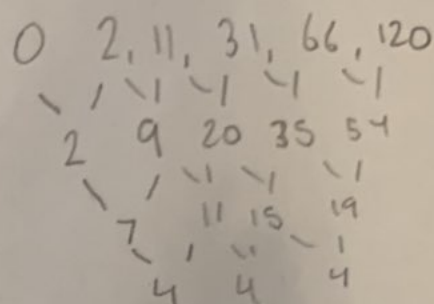 0 2, 11, 31, 66, 120
2 9 20 35 54
7 11 15 19
4 4 4